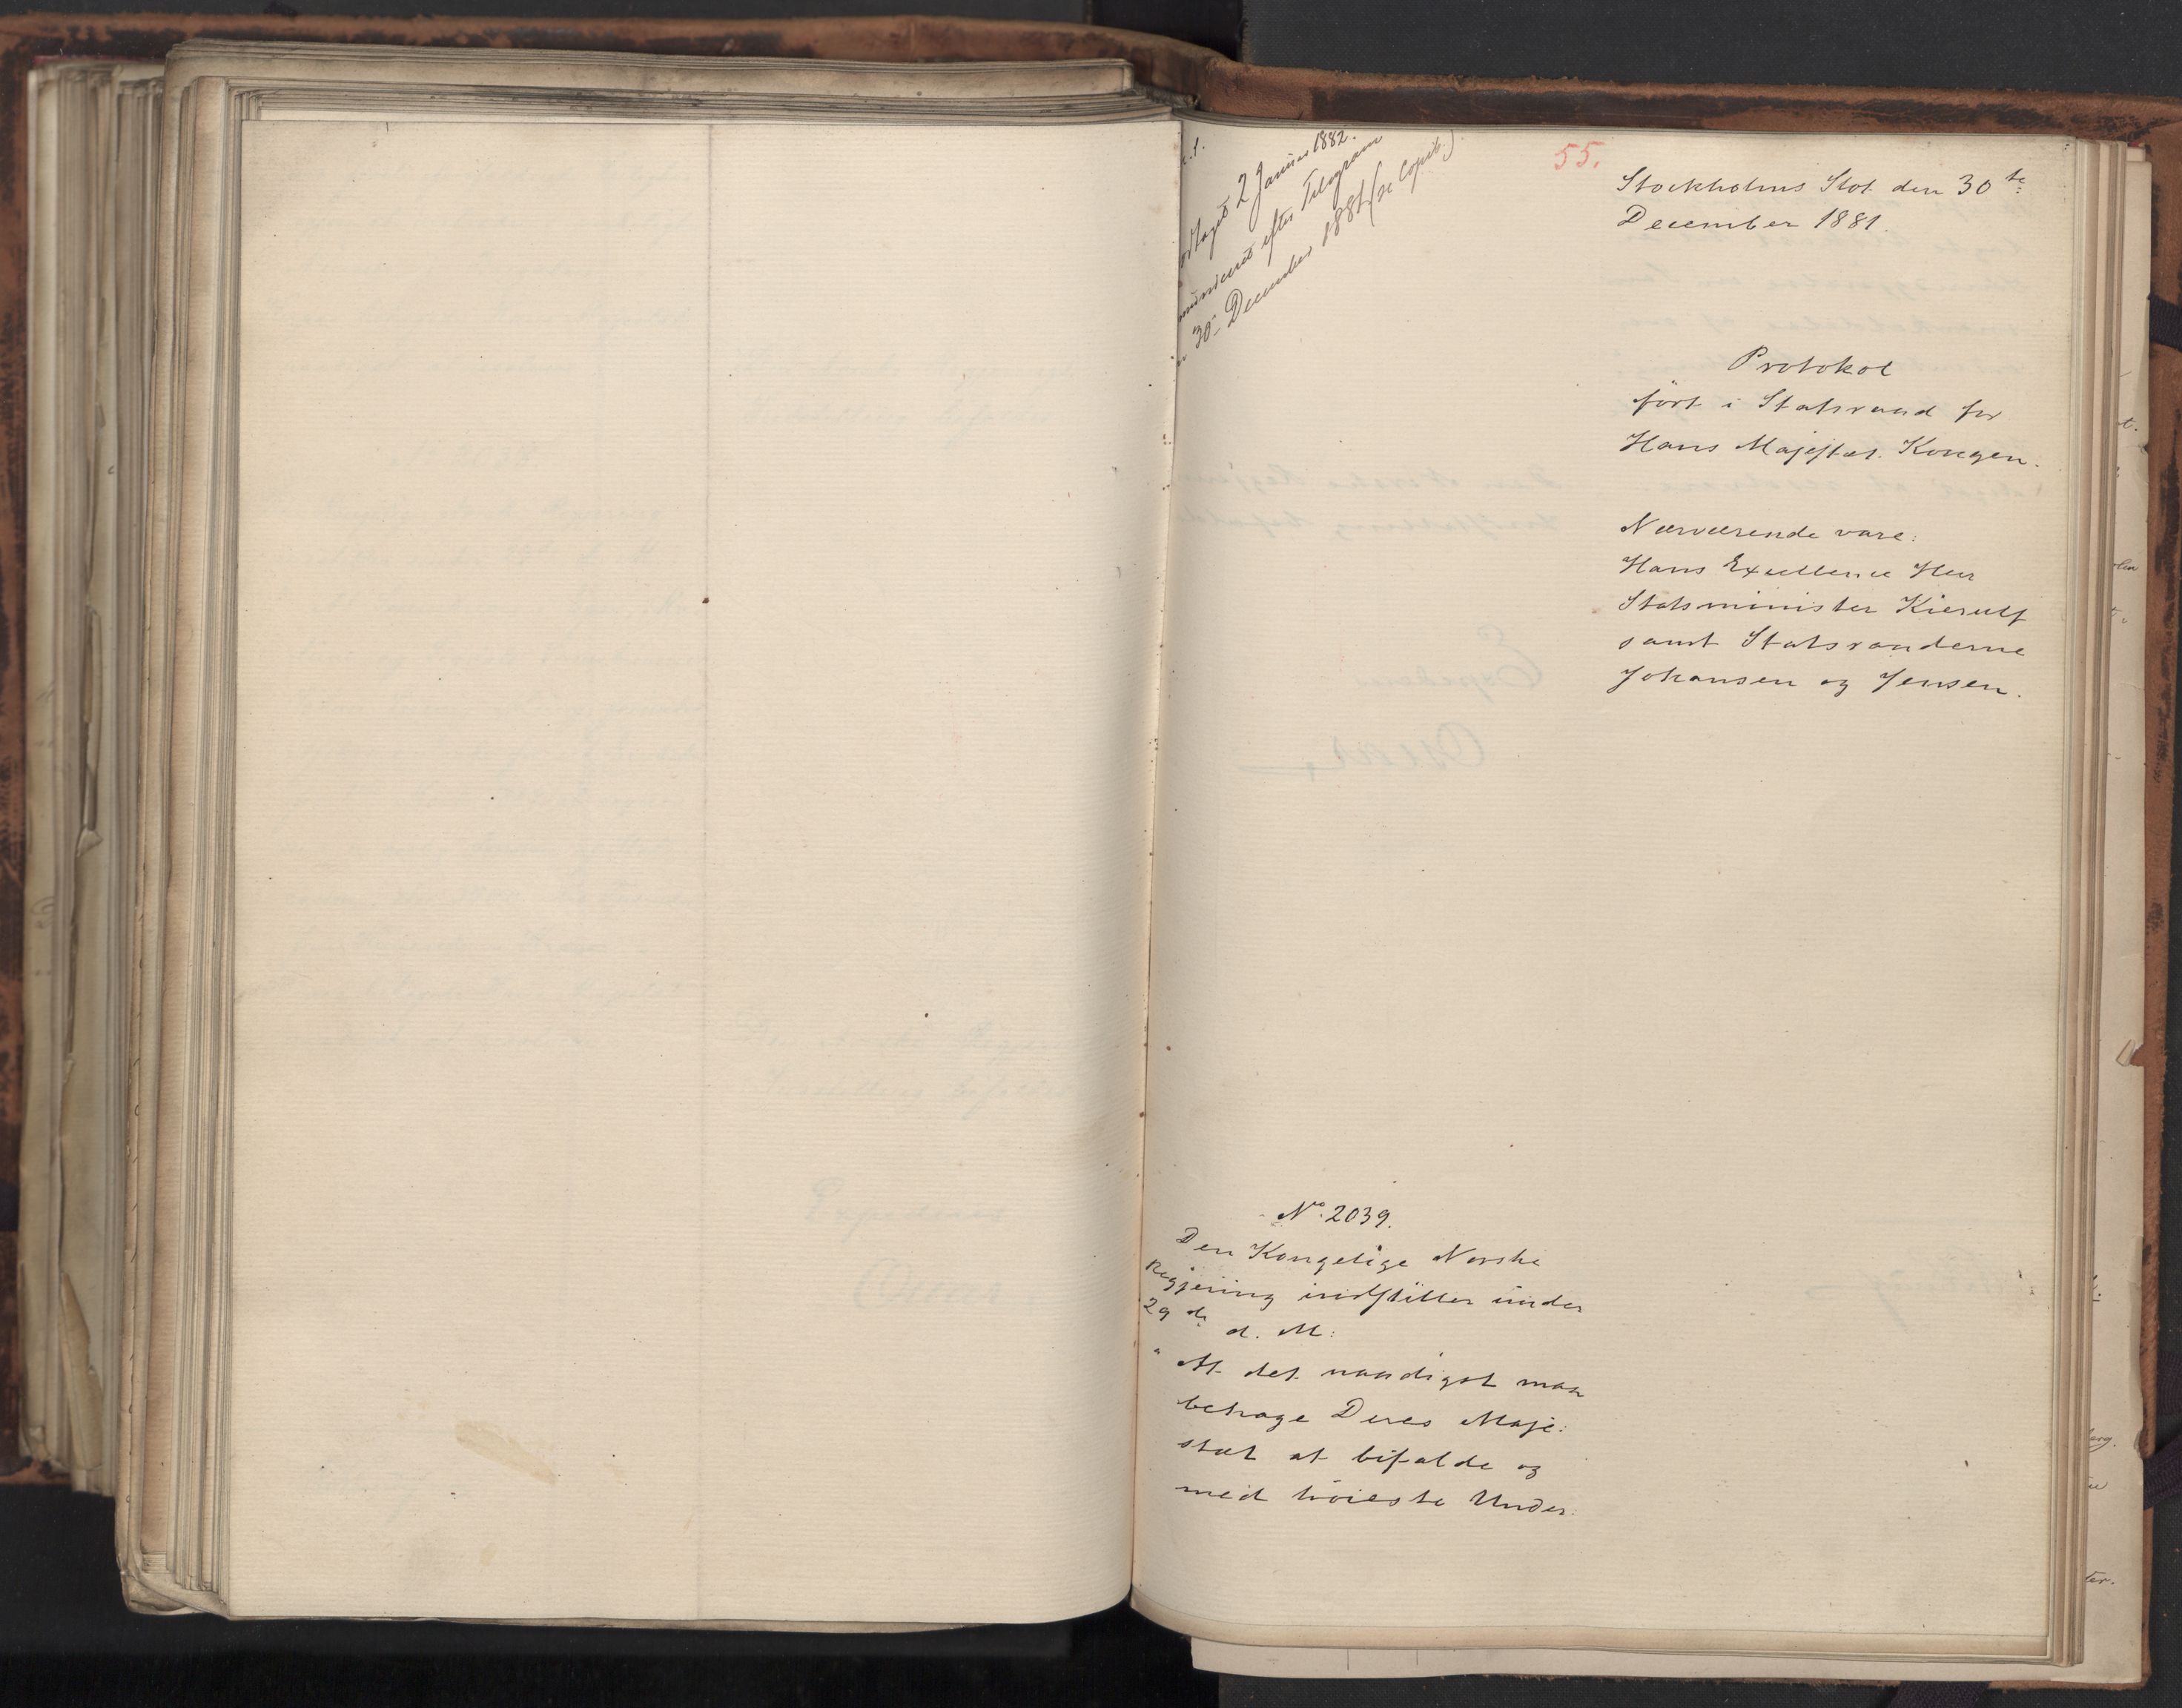 2 Januar 1882.
efter Telegram
30' December 1881 (se Copib.)
55.
Stockholms Slot den 30te
December 1881.
Protokol
ført i Statsraad for
Hans Majestæt Kongen.
Nærværende vare:
Hans Excellence Herr
Statsminister Kierulf
samt Statsraaderne
Johansen og Jensen.
No. 2039.
Den Kongelige Norske
Regjering indstiller under
29de d. M:
"At det naadigst maa
behage Deres Maje:
stæt at bifalde og
med høieste Under: